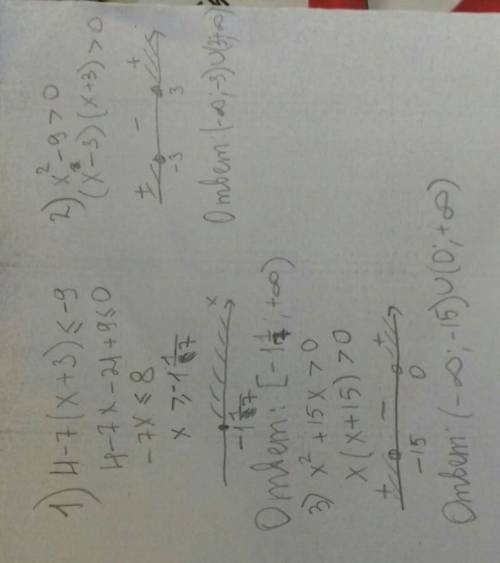 1) 4-7(x+3) ≤ -9
4-7x-21+9 ≤ 0
-7x ≤ 8
x ≥ -1 1/7
-1 1/7 x
Ответ: [-1 1/7; +∞)
2) x² - 9 > 0
(x-3)(x+3) > 0
+ - +
-3 3
Ответ: (-∞; -3)∪(3; +∞)
3) x² + 15x > 0
x(x+15) > 0
+ - +
-15 0
Ответ: (-∞; -15)∪(0; +∞)